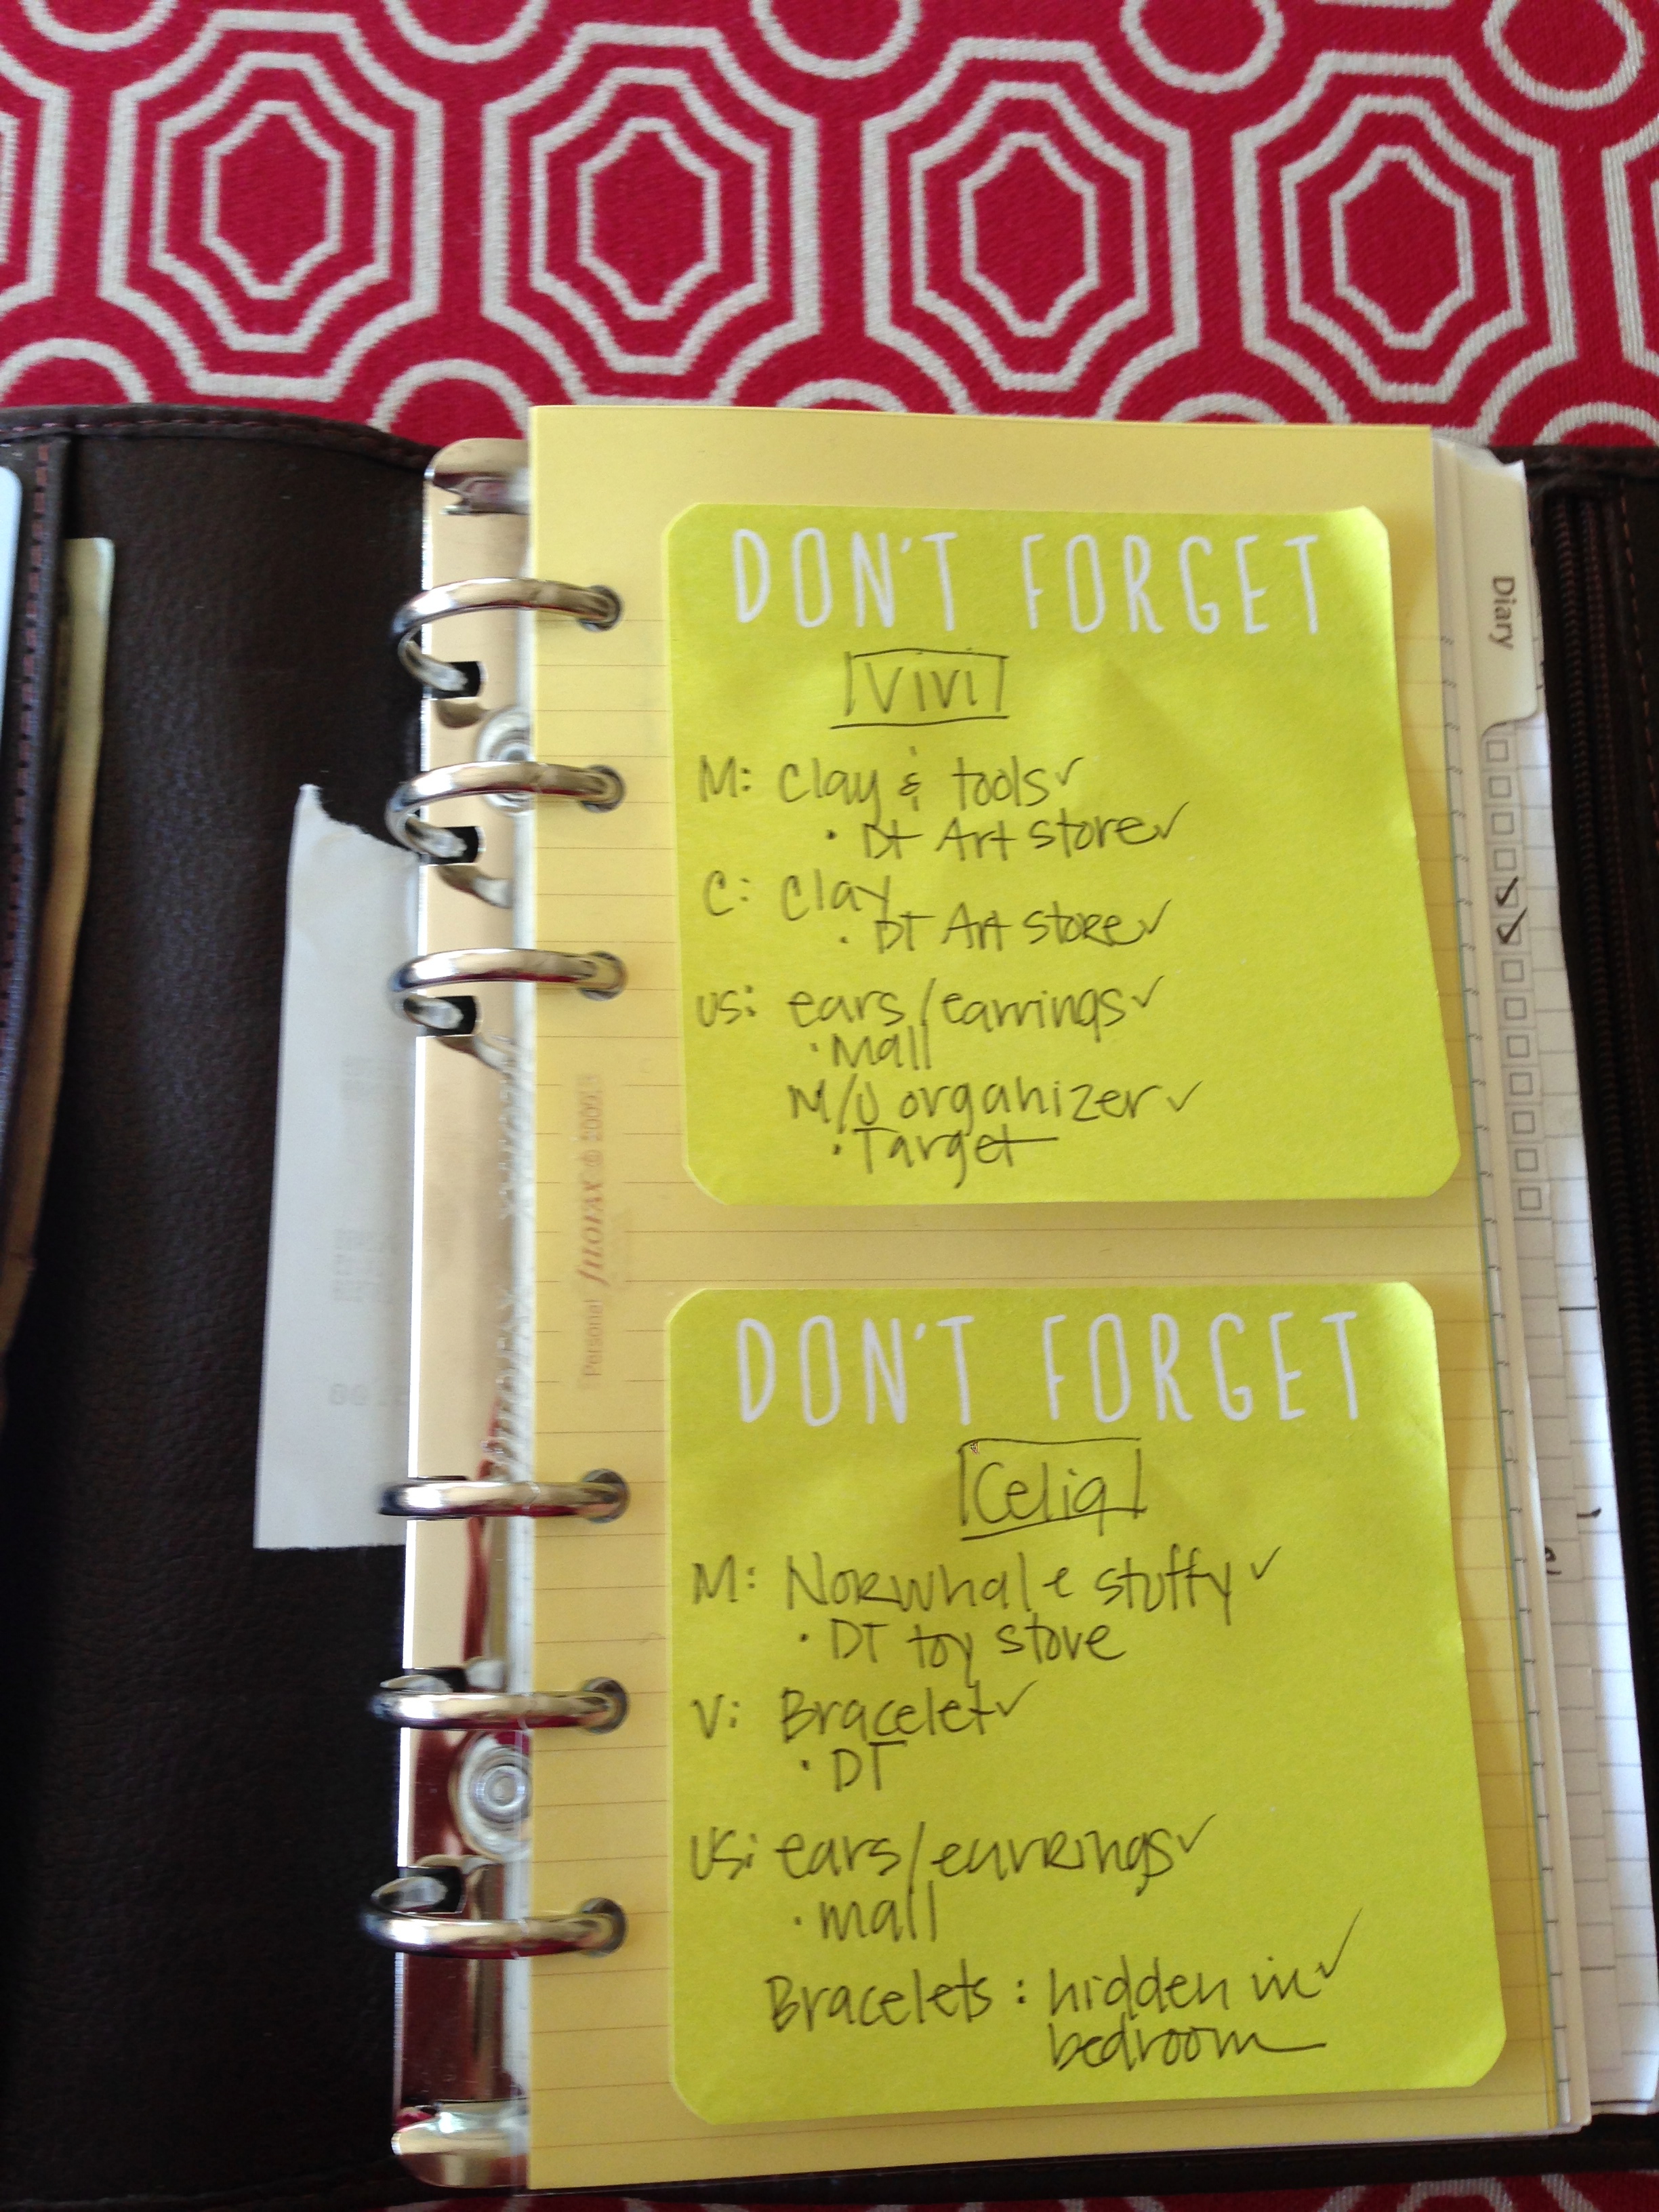 DON'T FORGET
Vivi
M: Clay & tools✓
· DT Art store✓
C: Clay
· DT Art store✓
US: ears/earrings✓
· Mall
M/U organizer✓
· Target
DON'T FORGET
Celia
M: Norwhale stuffy✓
· DT toy store
V: Bracelet✓
· DT
US: ears/earrings✓
· mall
Bracelets: hidden in✓
bedroom
Diary
Personal filofax © 2009